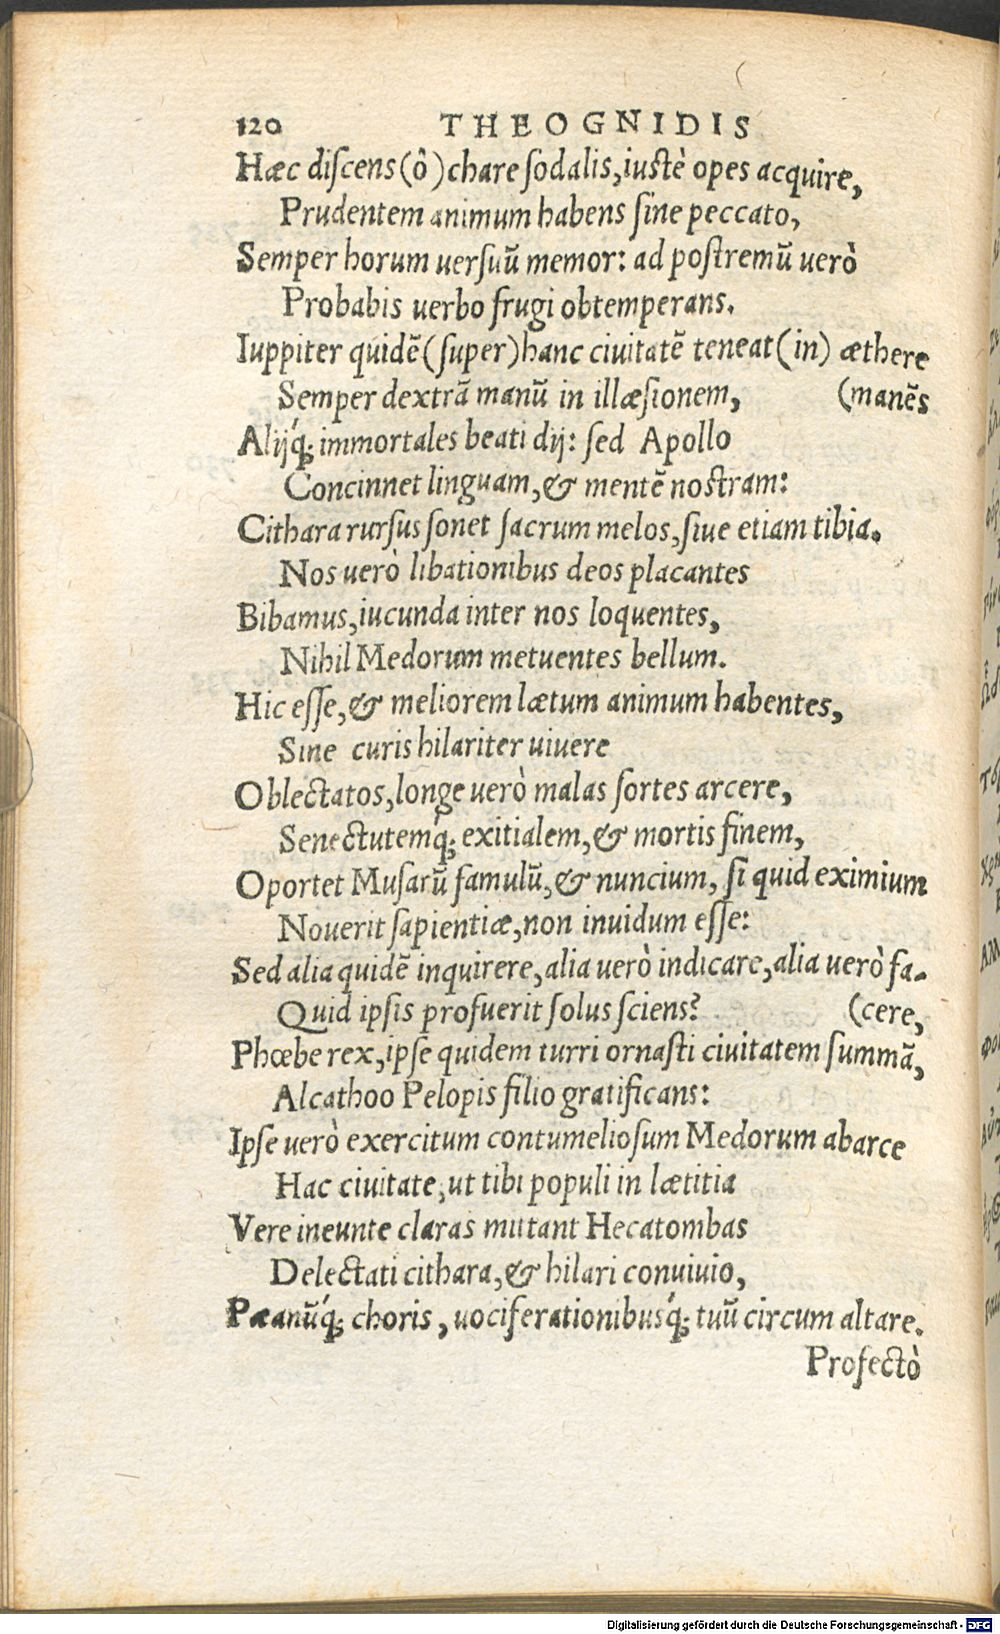 120 THEOGNIDIS
Hæc discens(ô)chare sodalis,iustè opes acquire,
Prudentem animum habens sine peccato,
Semper horum uersuũ memor: ad postremũ uerò
Probabis uerbo frugi obtemperans.
Iuppiter quidẽ(super)hanc ciuitatẽ teneat(in) æthere
Semper dextrã manũ in illæsionem, (manẽs
Alijq́; immortales beati dij: sed Apollo
Concinnet linguam,& mentẽ nostram:
Cithara rursus sonet sacrum melos,siue etiam tibia.
Nos uerò libationibus deos placantes
Bibamus,iucunda inter nos loquentes,
Nihil Medorum metuentes bellum.
Hic esse,& meliorem lætum animum habentes,
Sine curis hilariter uiuere
Oblectatos,longe uerò malas sortes arcere,
Senectutemq́; exitialem,& mortis finem,
Oportet Musarũ famulũ,& nuncium, si quid eximium
Nouerit sapientiæ,non inuidum esse:
Sed alia quidẽ inquirere,alia uerò indicare,alia uerò fa-
Quid ipsis profuerit solus sciens? (cere,
Phœbe rex,ipse quidem turri ornasti ciuitatem summã,
Alcathoo Pelopis filio gratificans:
Ipse uerò exercitum contumeliosum Medorum abarce
Hac ciuitate,ut tibi populi in lætitia
Vere ineunte claras mittant Hecatombas
Delectati cithara,& hilari conuiuio,
Pæanũq́; choris, uociferationibusq́; tuũ circum altare.
Profectò
Digitalisierung gefördert durch die Deutsche Forschungsgemeinschaft - DFG